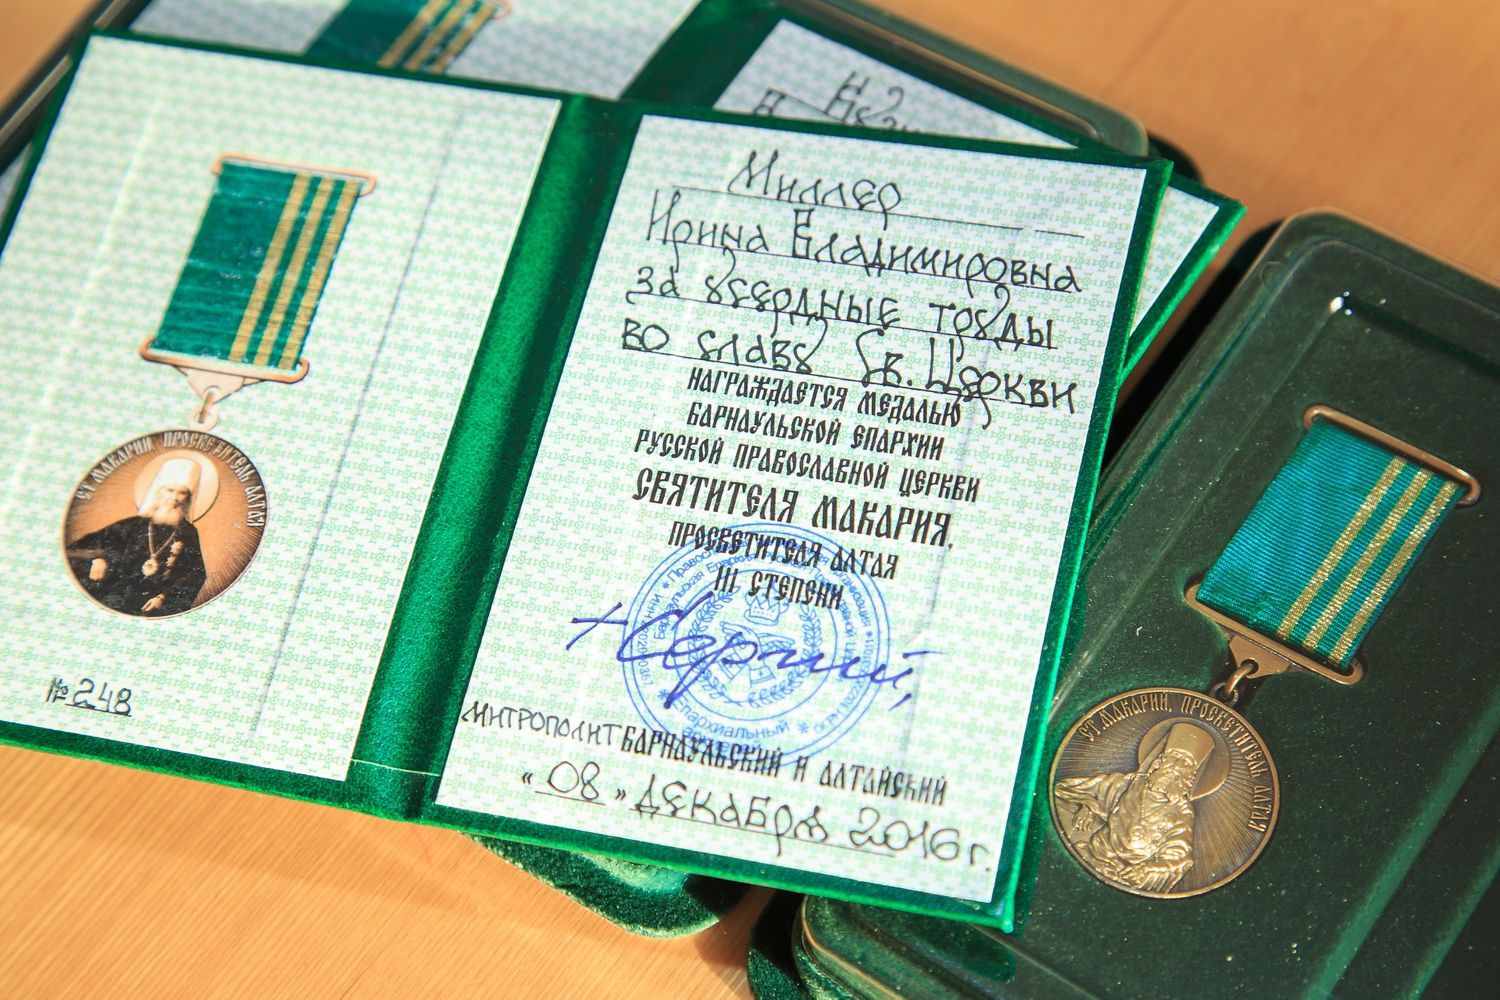 СТ. МАКАРИЙ, ПРОСВЕТИТЕЛЬ АЛТАЯ
№ 248
Миллер
Ирина Владимировна
за усердные труды
во славу Св. Церкви
НАГРАЖДАЕТСЯ МЕДАЛЬЮ
БАРНАУЛЬСКОЙ ЕПАРХИИ
РУССКОЙ ПРАВОСЛАВНОЙ ЦЕРКВИ
СВЯТИТЕЛЯ МАКАРИЯ,
ПРОСВЕТИТЕЛЯ АЛТАЯ
III СТЕПЕНИ
+Сергий,
МИТРОПОЛИТ БАРНАУЛЬСКИЙ И АЛТАЙСКИЙ
"08" декабря 2016 г.
Барнаульская Епархия
Епархиальный
СТ. МАКАРИЙ, ПРОСВЕТИТЕЛЬ АЛТАЯ